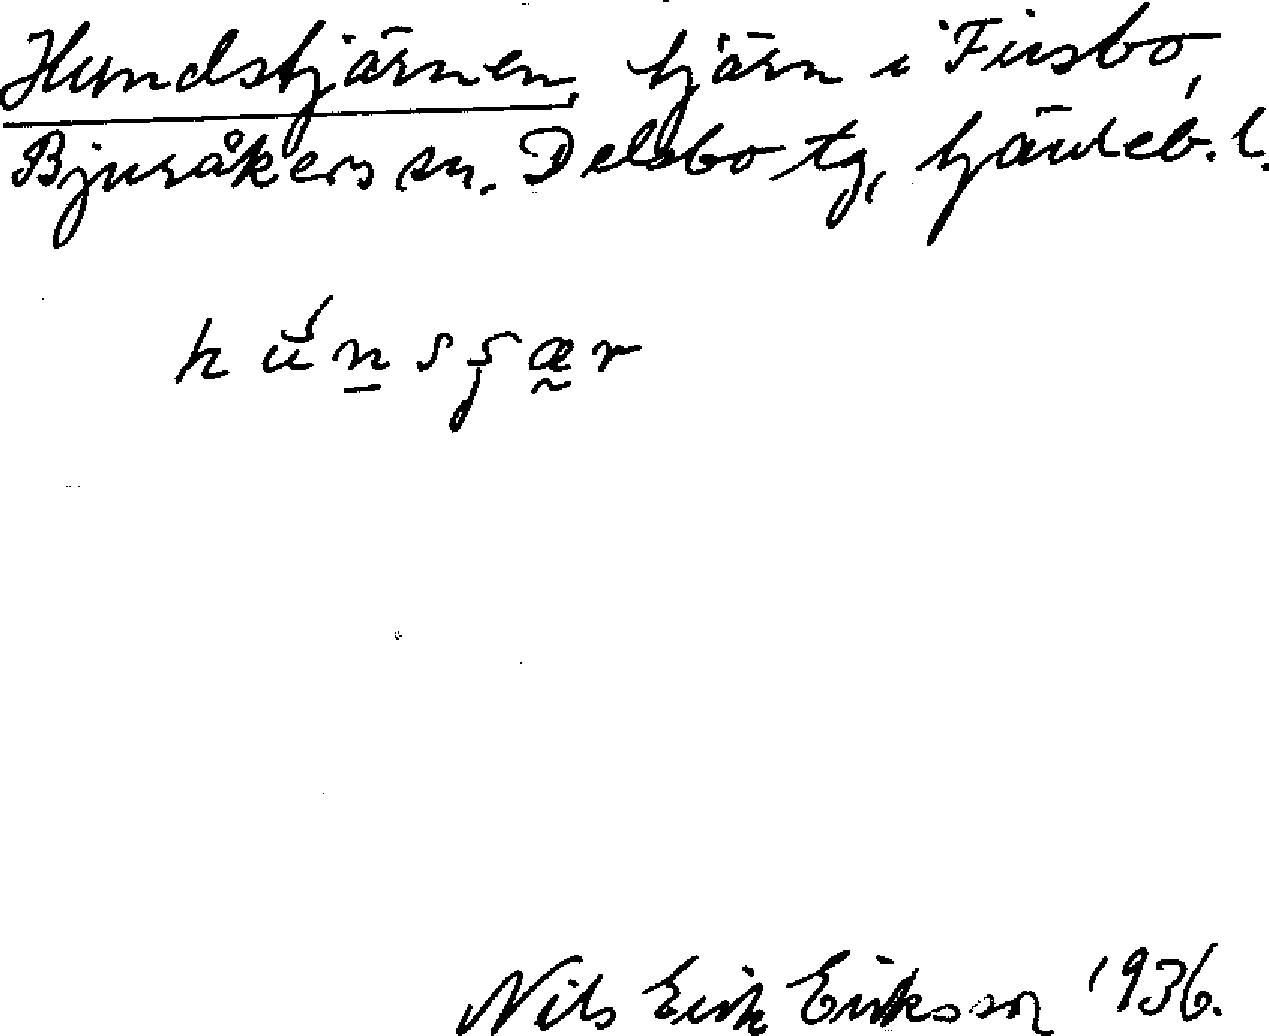 Hundstjärnen, tjärn i Frisbo,
Bjuråkers sn. Delsbo tg, Gävleb. l.
Nils Erik Eriksson 1936.